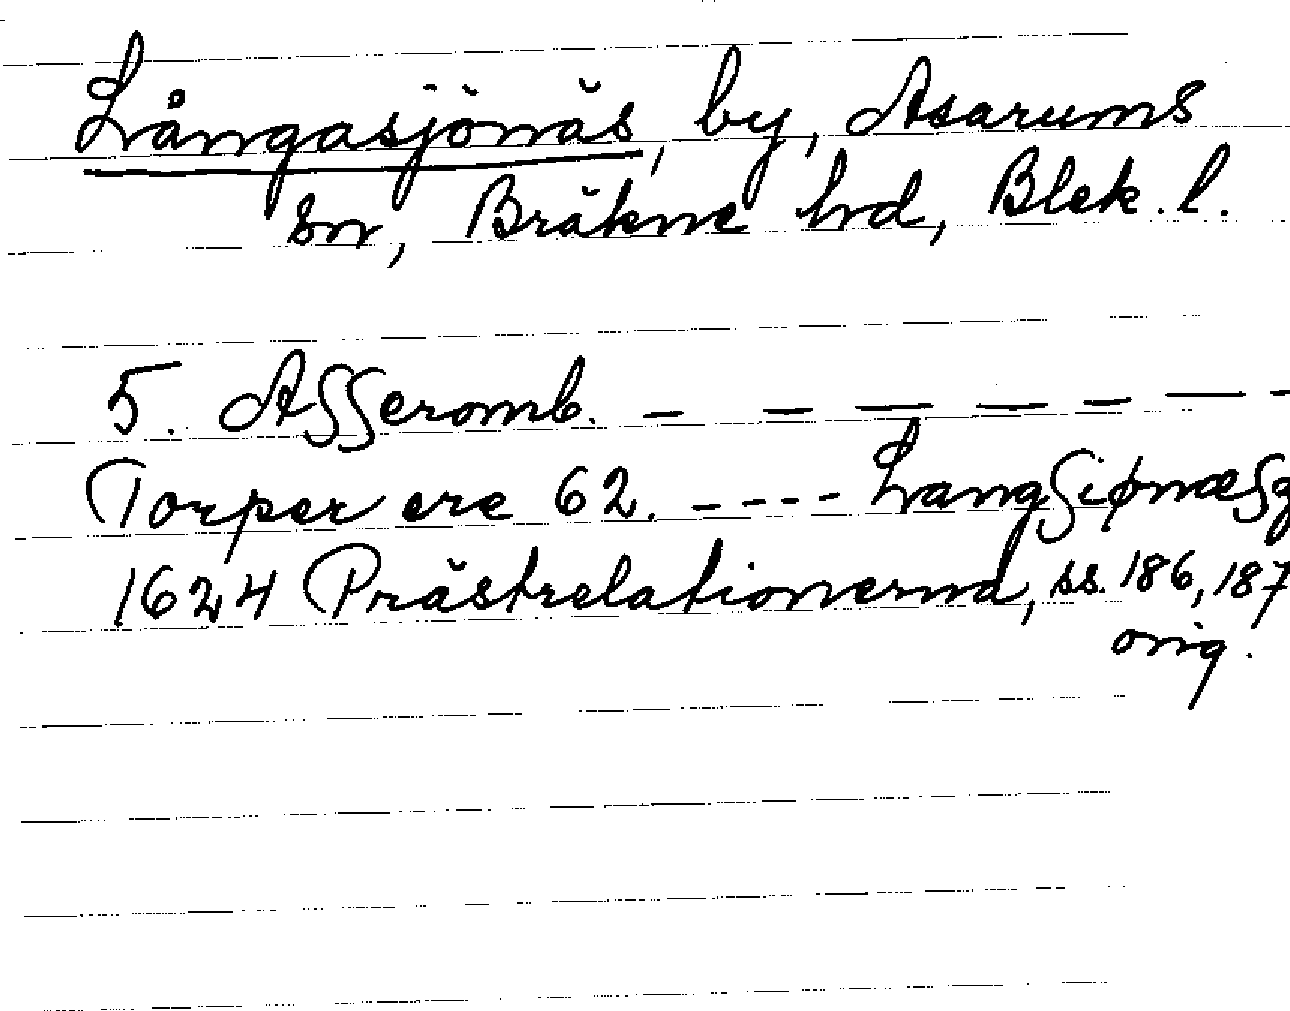 Långasjönäs, by, Asarums
sn, Bräkne hd, Blek. l.
5. Asseromb. — — — — — — —
Torper ere 62. ---- Langsiønæsg
1624 Prästrelationerna, ss. 186, 187
orig.